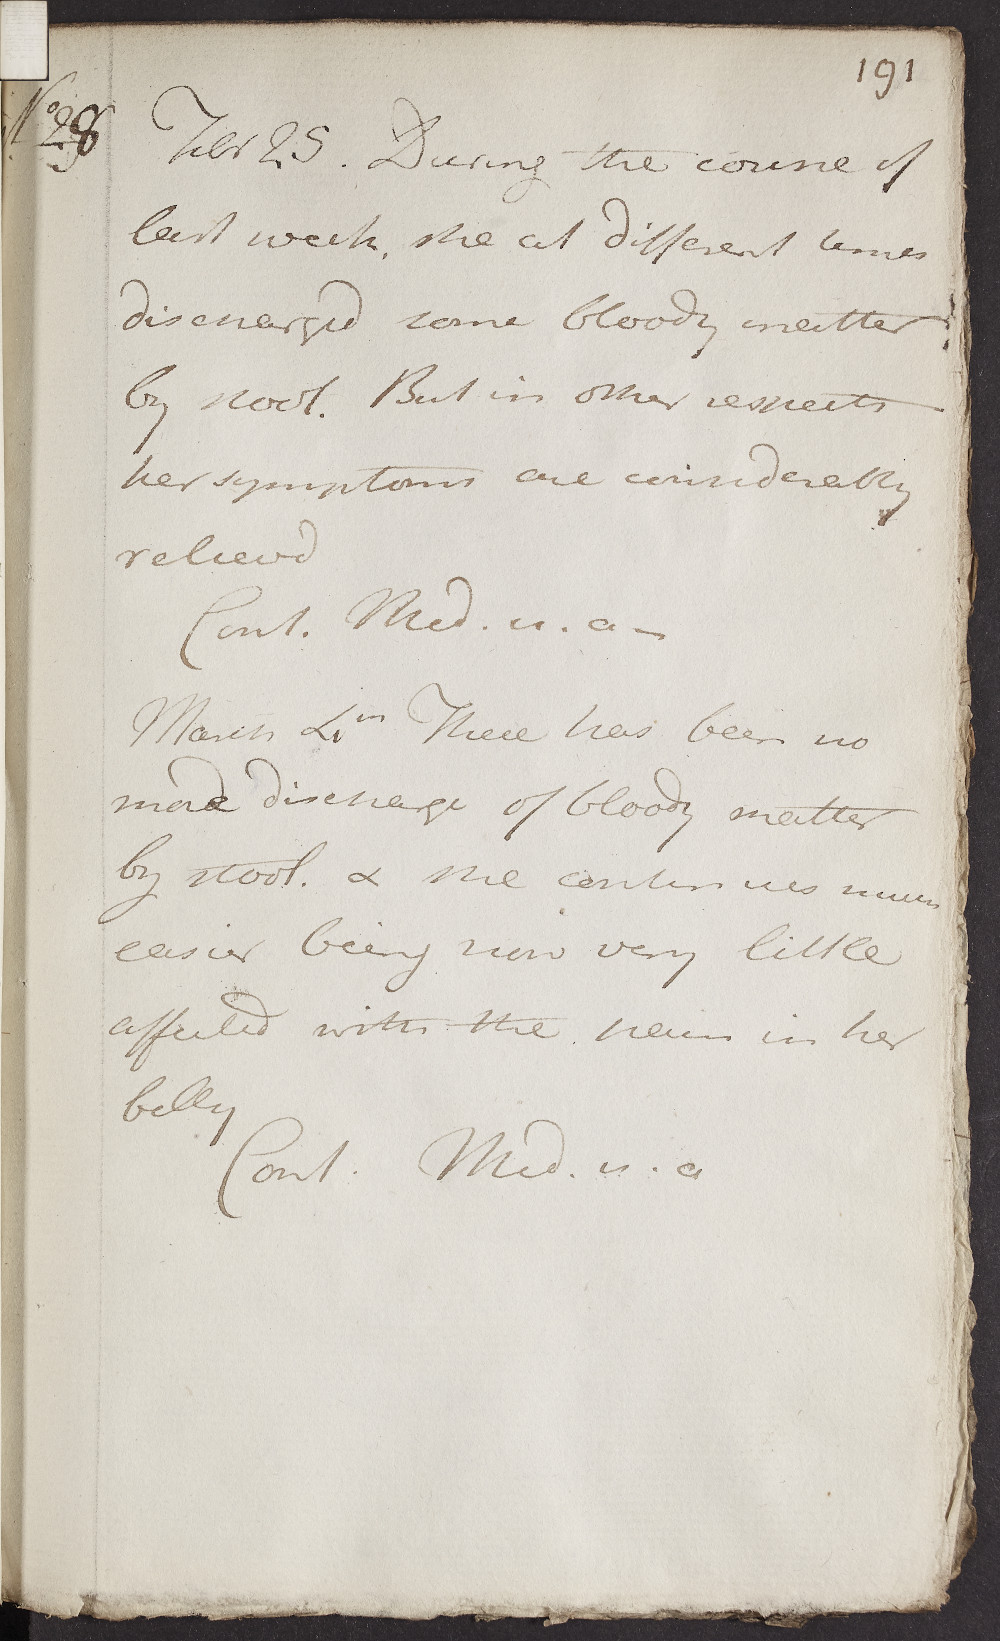 191
No 28
Febr 25. During the course of
last week, she at different times
discharged some bloody matter
by stool. But in other respects
her symptoms are considerably
relievd
Cont. Med. u. a
March 4th There has been no
more discharge of bloody matter
by stool. & she continues much
easier being now very little
affected with the pain in her
belly
Cont. Med. u. a